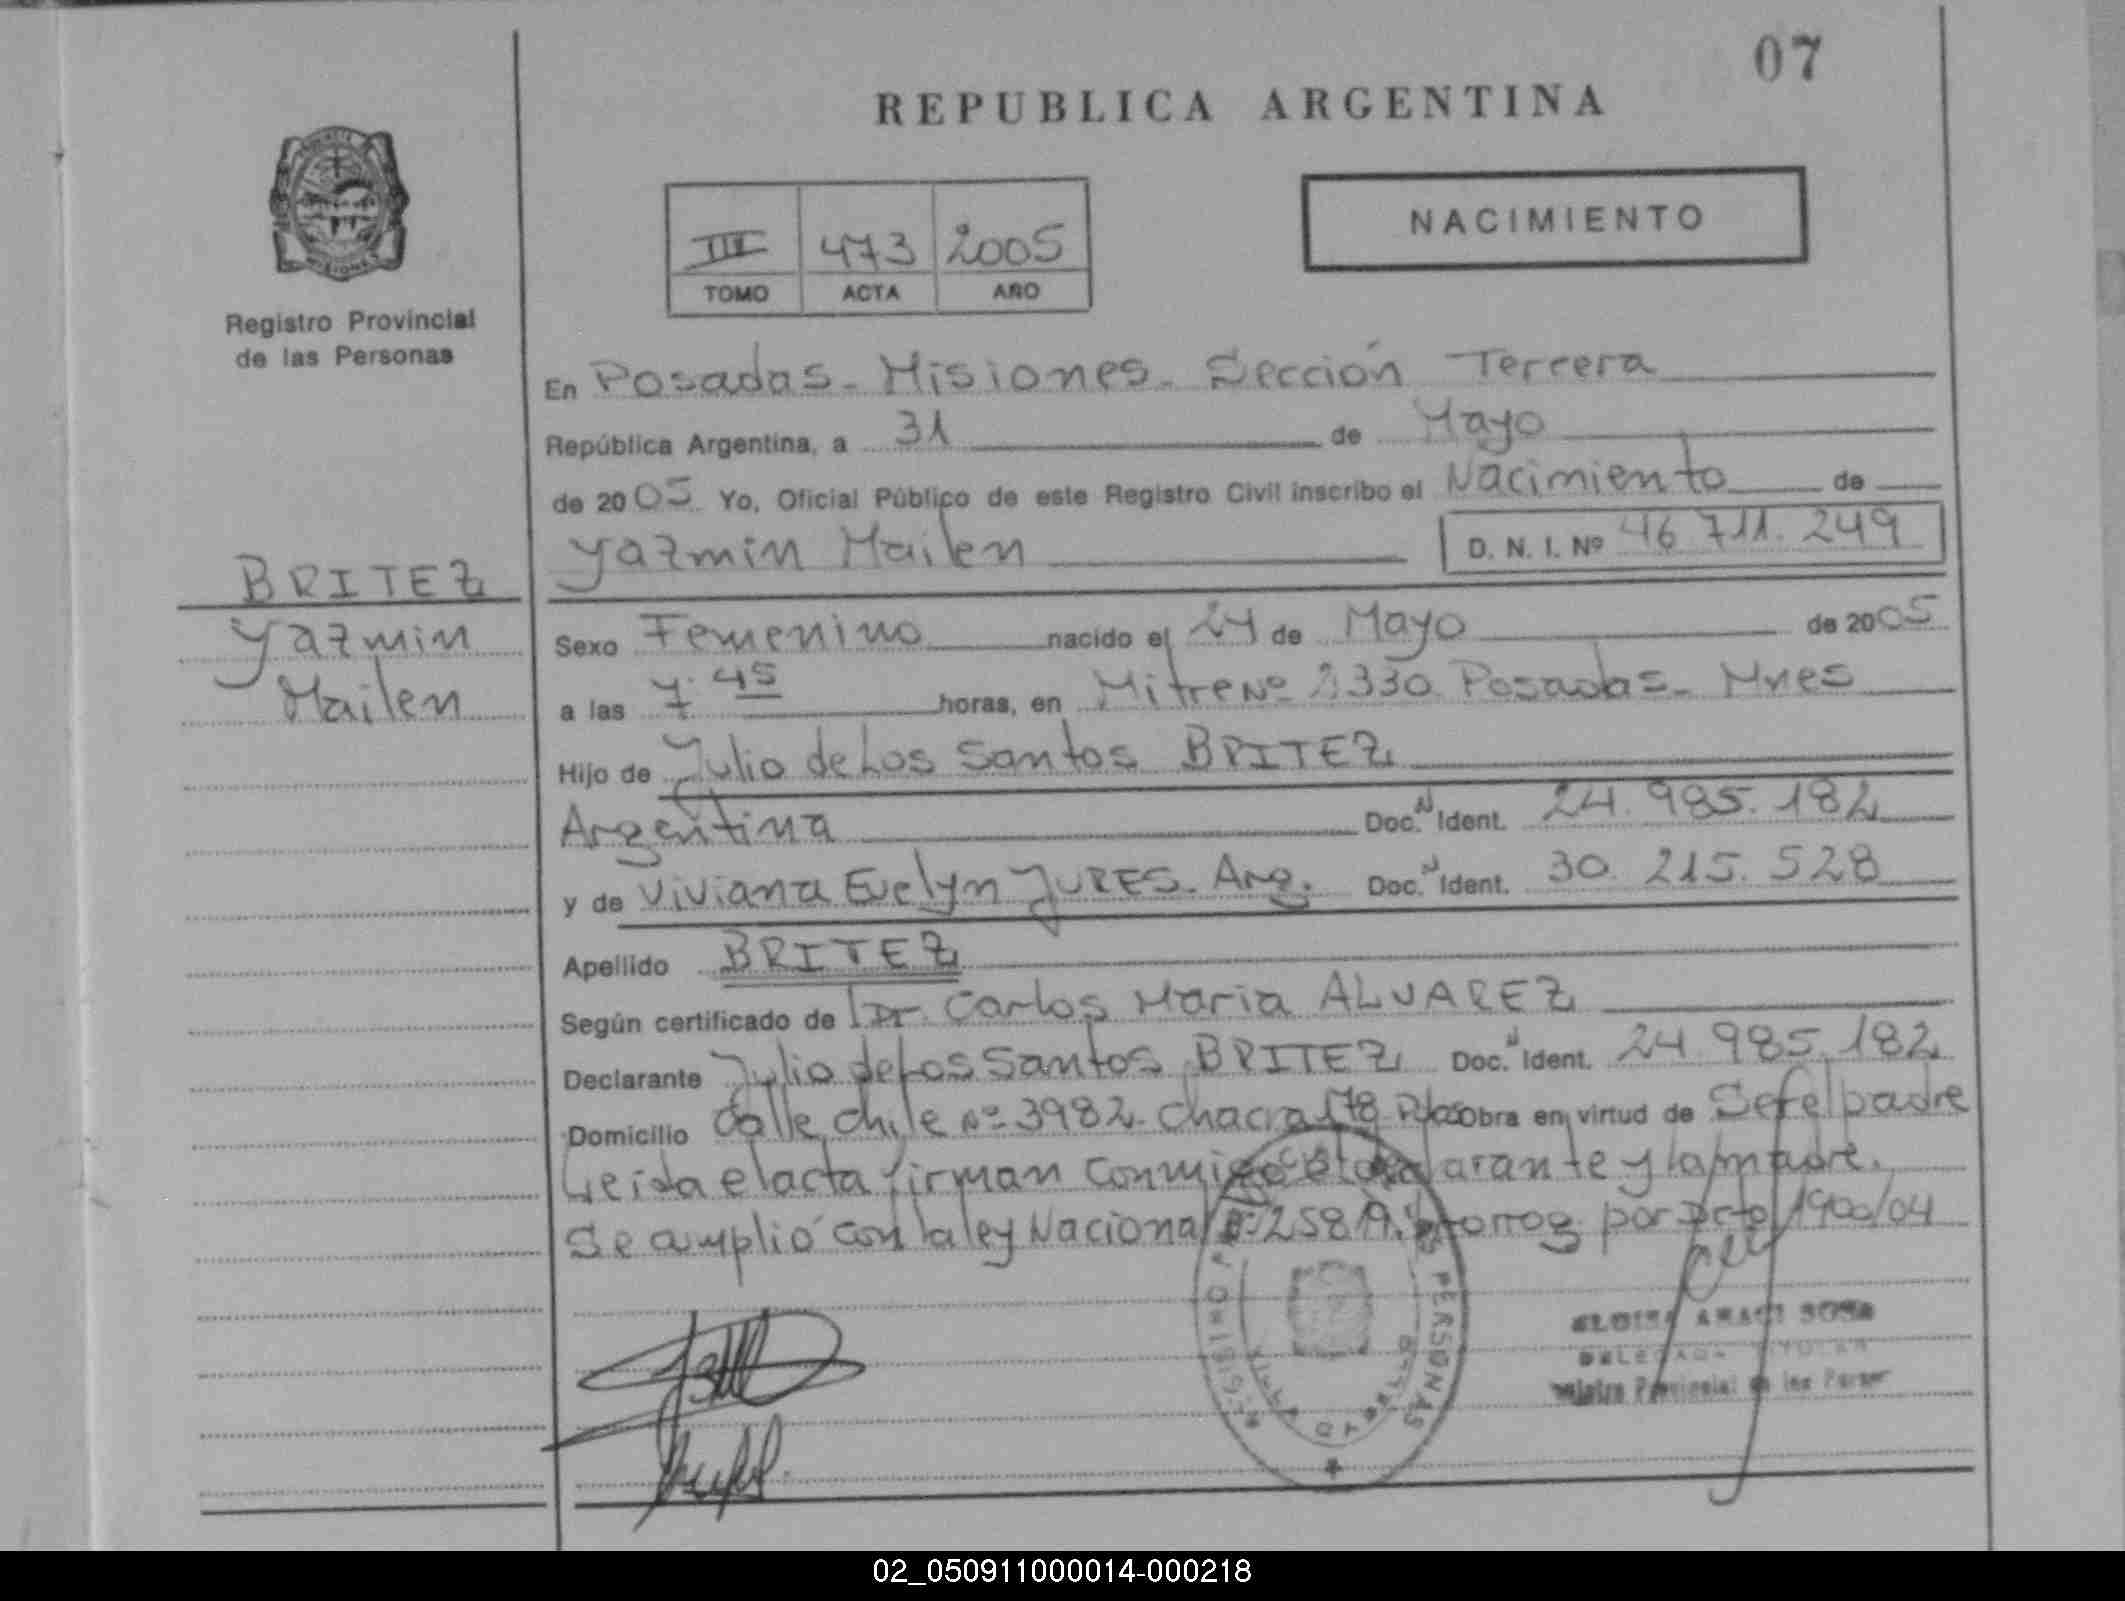 07
REPUBLICA ARGENTINA
NACIMIENTO
III 473 2005
TOMO ACTA AÑO
Registro Provincial
de las Personas
En Posadas - Misiones - Sección Tercera
República Argentina, a 31 de Mayo
de 2005 Yo, Oficial Público de este Registro Civil inscribo el Nacimiento de
Yazmin Mailen D. N. I. Nº 46 711. 249
BRITEZ
Yazmin
Mailen
Sexo Femenino nacido el 24 de Mayo de 2005
a las 7:45 horas, en Mitre Nº 2330 Posadas - Mnes
Hijo de Julio de Los Santos BRITEZ
Argentina Doc. N Ident. 24. 985. 182
y de Viviana Evelyn JURES - Arg. Doc. N Ident. 30. 215. 528
Apellido BRITEZ
Según certificado de Dr. Carlos Maria ALVAREZ
Declarante Julio de Los Santos BRITEZ Doc. N Ident. 24 985. 182
Domicilio Calle Chile Nº 3982 - Chacra 178 Pdas Obra en virtud de Ser el padre
Leida el acta firman conmigo el declarante y la madre.
Se amplió con la ley Nacional Nº 25819. prorrog. por Dcto 1900/04
PERSONAS
ELOISA ARACI SOSA
DELEGADA TITULAR
Registro Provincial de las Person
02_050911000014-000218